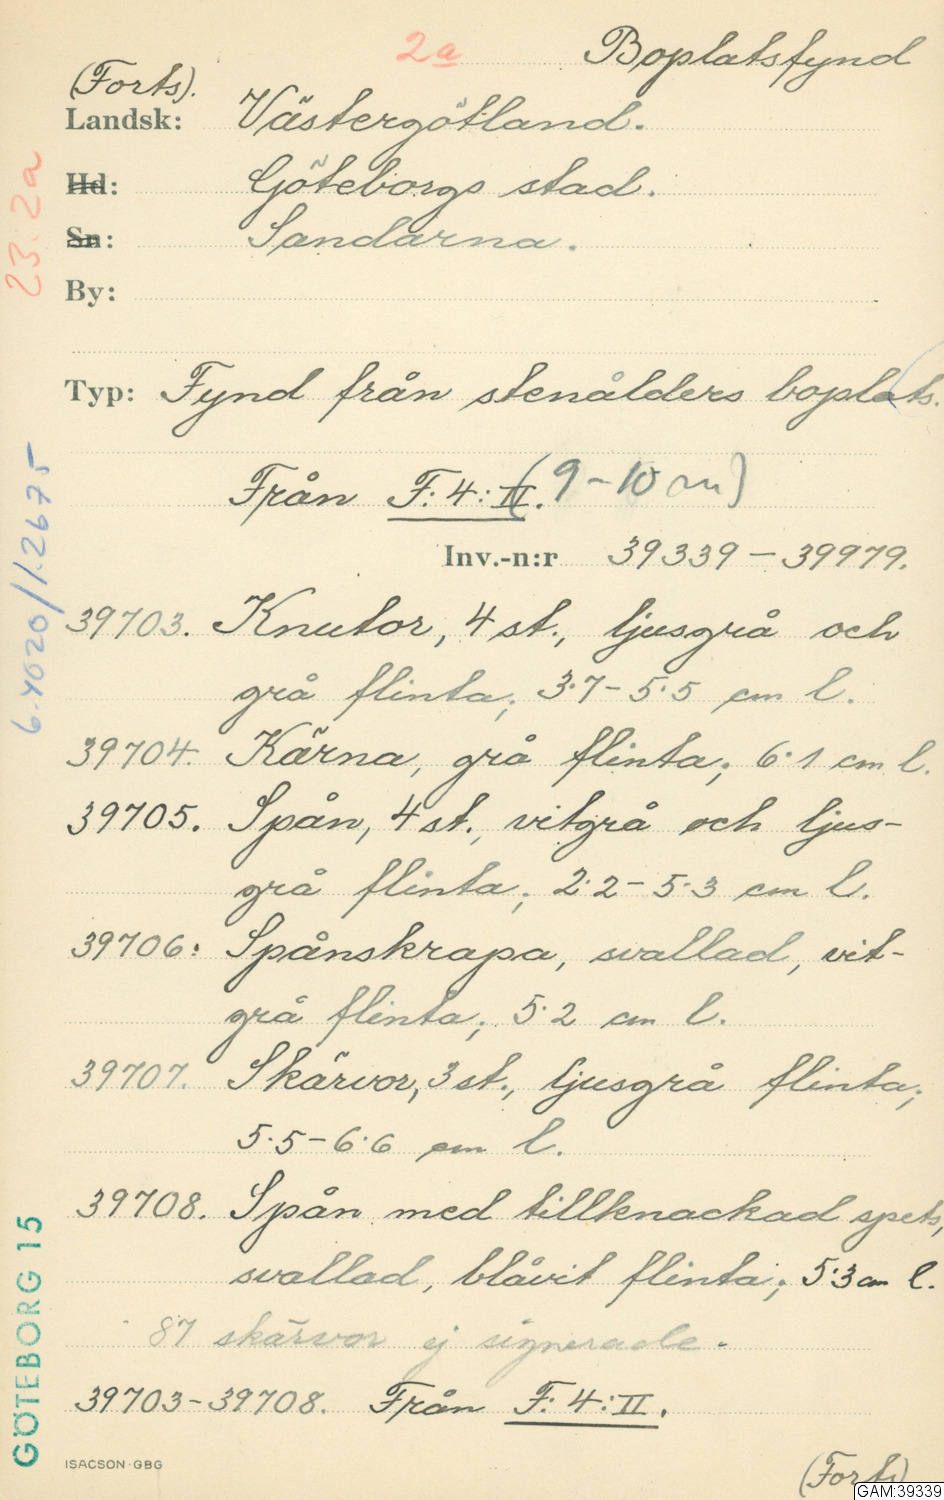 2a Boplatsfynd
(Forts).
Landsk: Västergötland.
Hd: Göteborgs stad.
Sn: Sandarna.
By:
Typ: Fynd från stenålders boplats.
Från F:4:II. (9-10 cm)
Inv.-n:r 39339 - 39979.
39703. Knutor, 4 st., ljusgrå och
grå flinta; 3.7 - 5.5 cm l.
39704. Kärna, grå flinta; 6.1 cm l.
39705. Spån, 4 st., vitgrå och ljus-
grå flinta; 2.2 - 5.3 cm l.
39706: Spånskrapa, svallad, vit-
grå flinta; 5.2 cm l.
39707. Skärvor, 3 st., ljusgrå flinta;
5.5 - 6.6 cm l.
39708. Spån med tillknackad spets,
svallad, blåvit flinta; 5.3 cm l.
87 skärvor ej signerade.
39703-39708. Från F:4:II.
(Forts)
ISACSON·GBG
GAM:39339
23.2a
6.4020/1.2675
GÖTEBORG 15